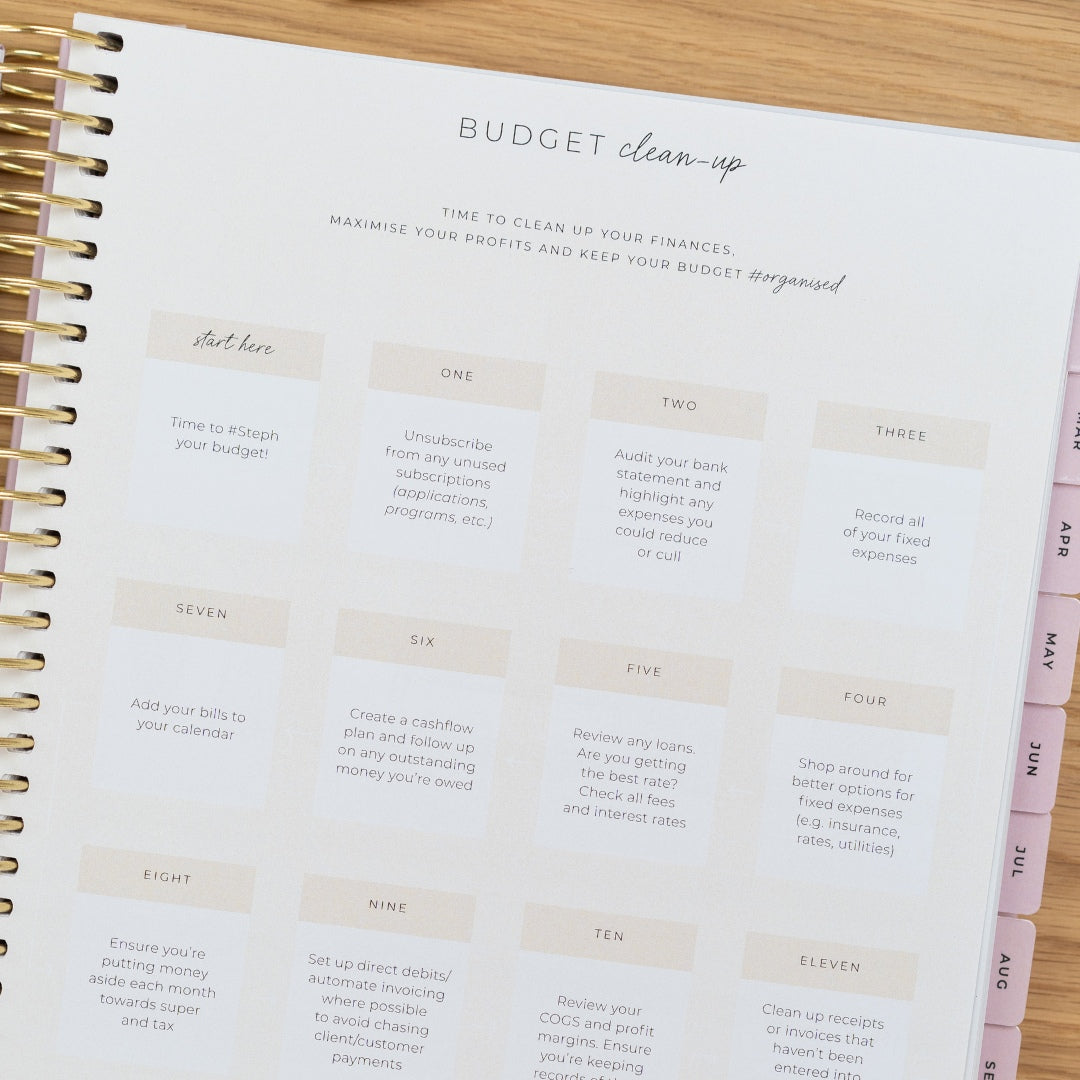 BUDGET clean-up
TIME TO CLEAN UP YOUR FINANCES,
MAXIMISE YOUR PROFITS AND KEEP YOUR BUDGET #organised
start here
Time to #Steph
your budget!
ONE
Unsubscribe
from any unused
subscriptions
(applications,
programs, etc.)
TWO
Audit your bank
statement and
highlight any
expenses you
could reduce
or cull
THREE
Record all
of your fixed
expenses
SEVEN
Add your bills to
your calendar
SIX
Create a cashflow
plan and follow up
on any outstanding
money you're owed
FIVE
Review any loans.
Are you getting
the best rate?
Check all fees
and interest rates
FOUR
Shop around for
better options for
fixed expenses
(e.g. insurance,
rates, utilities)
EIGHT
Ensure you're
putting money
aside each month
towards super
and tax
NINE
Set up direct debits/
automate invoicing
where possible
to avoid chasing
client/customer
payments
TEN
Review your
COGS and profit
margins. Ensure
you're keeping
records of
ELEVEN
Clean up receipts
or invoices that
haven't been
entered into
MAR
APR
MAY
JUN
JUL
AUG
SE